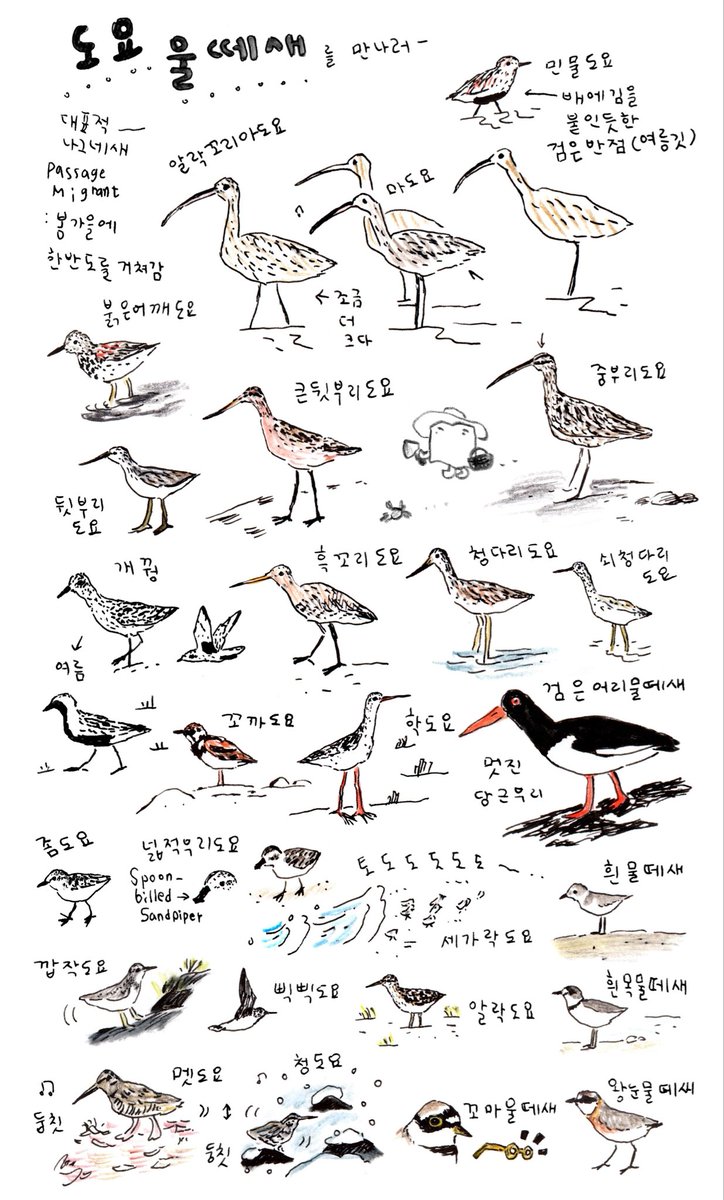 도요 물떼새를 만나러 ~
대표적
나그네새
Passage
Migrant
: 봄가을에
한반도를 거쳐감
민물도요
배에 김을
붙인듯한
검은 반점 (여름깃)
알락꼬리마도요
마도요
← 조금
더
크다
붉은어깨도요
큰뒷부리도요
중부리도요
뒷부리
도요
개꿩
여름
흑꼬리도요
청다리도요
쇠청다리
도요
꼬까도요
학도요
검은머리물떼새
멋진
당근부리
좀도요
넓적부리도요
Spoon-
billed →
Sandpiper
토도도돗도도~
세가락도요
흰물떼새
깝작도요
삑삑도요
알락도요
흰목물떼새
멧도요
둠칫
청도요
둠칫
꼬마물떼새
왕눈물떼새